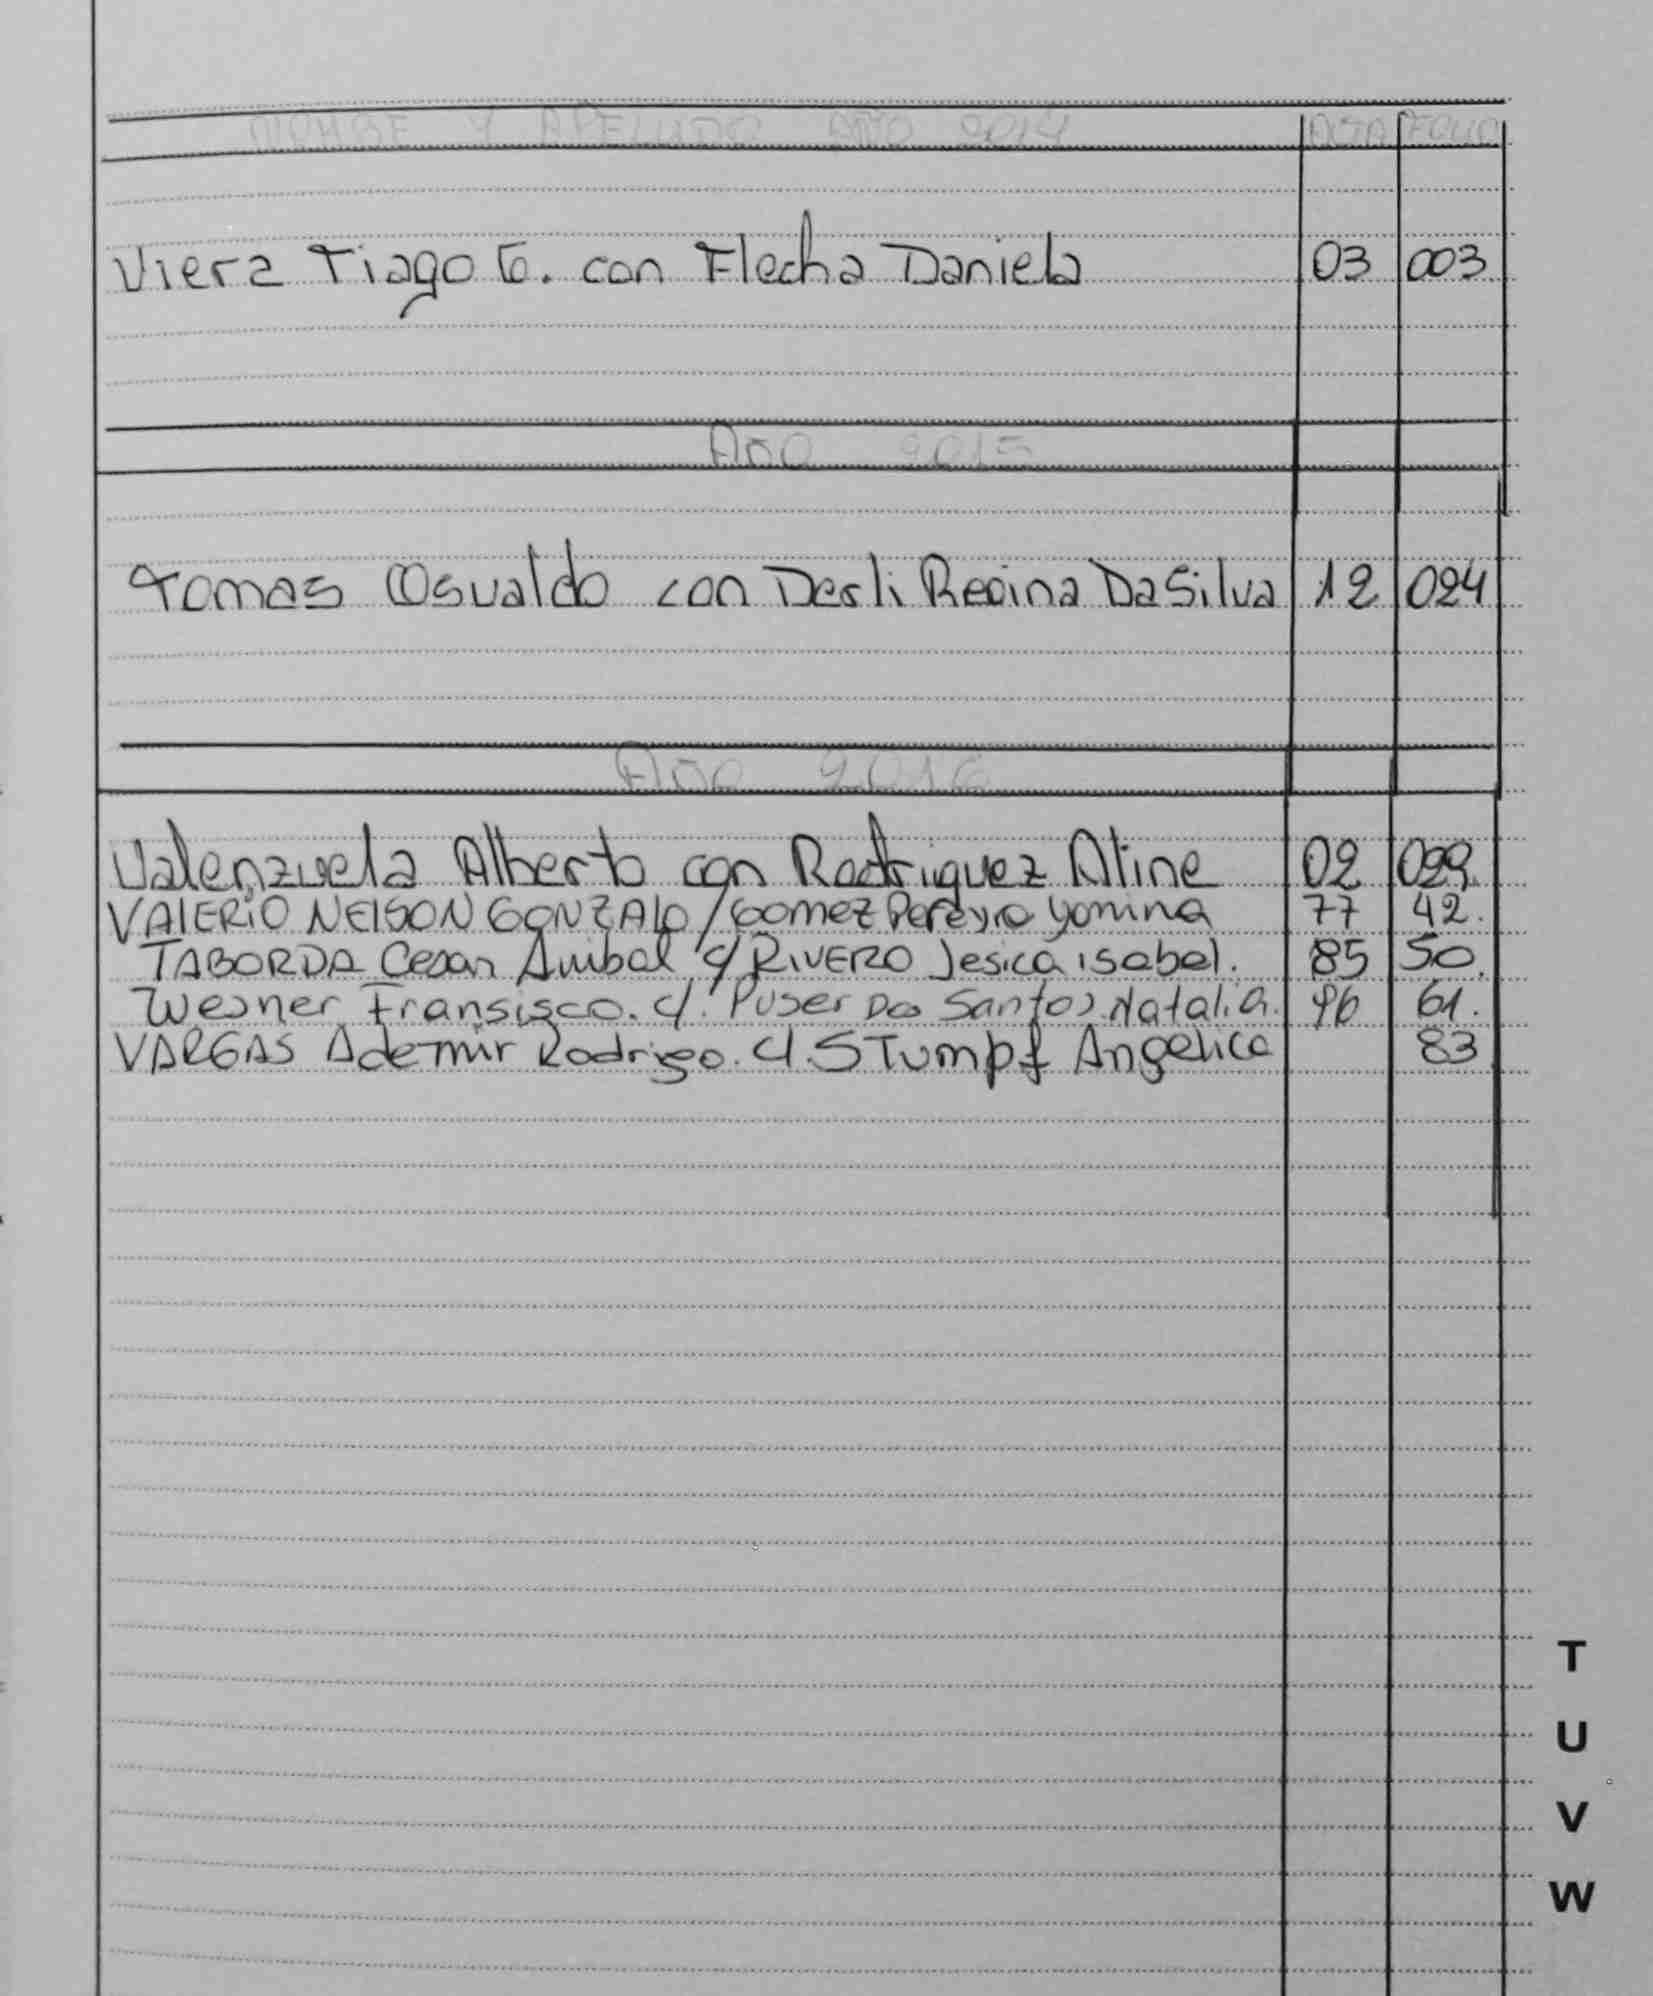 NOMBRE Y APELLIDO AÑO 2014 ACTA FOLIO
Viera Tiago G. con Flecha Daniela 03 003
AÑO 2015
Tomas Osvaldo con Derli Regina DaSilva 12 024
AÑO 2016
Valenzuela Alberto con Rodriguez Aline 02 029
VALERIO NELSON GONZALO / Gomez Pereyra Yamina 77 42.
TABORDA Cesar Anibal c/ RIVERO Jesica isabel. 85 50.
Wesner Fransisco. c/. Dos Santos Natalia. 96 61.
VARGAS Ademir Rodrigo. c/. STumpf Angelica 83
T
U
V
W